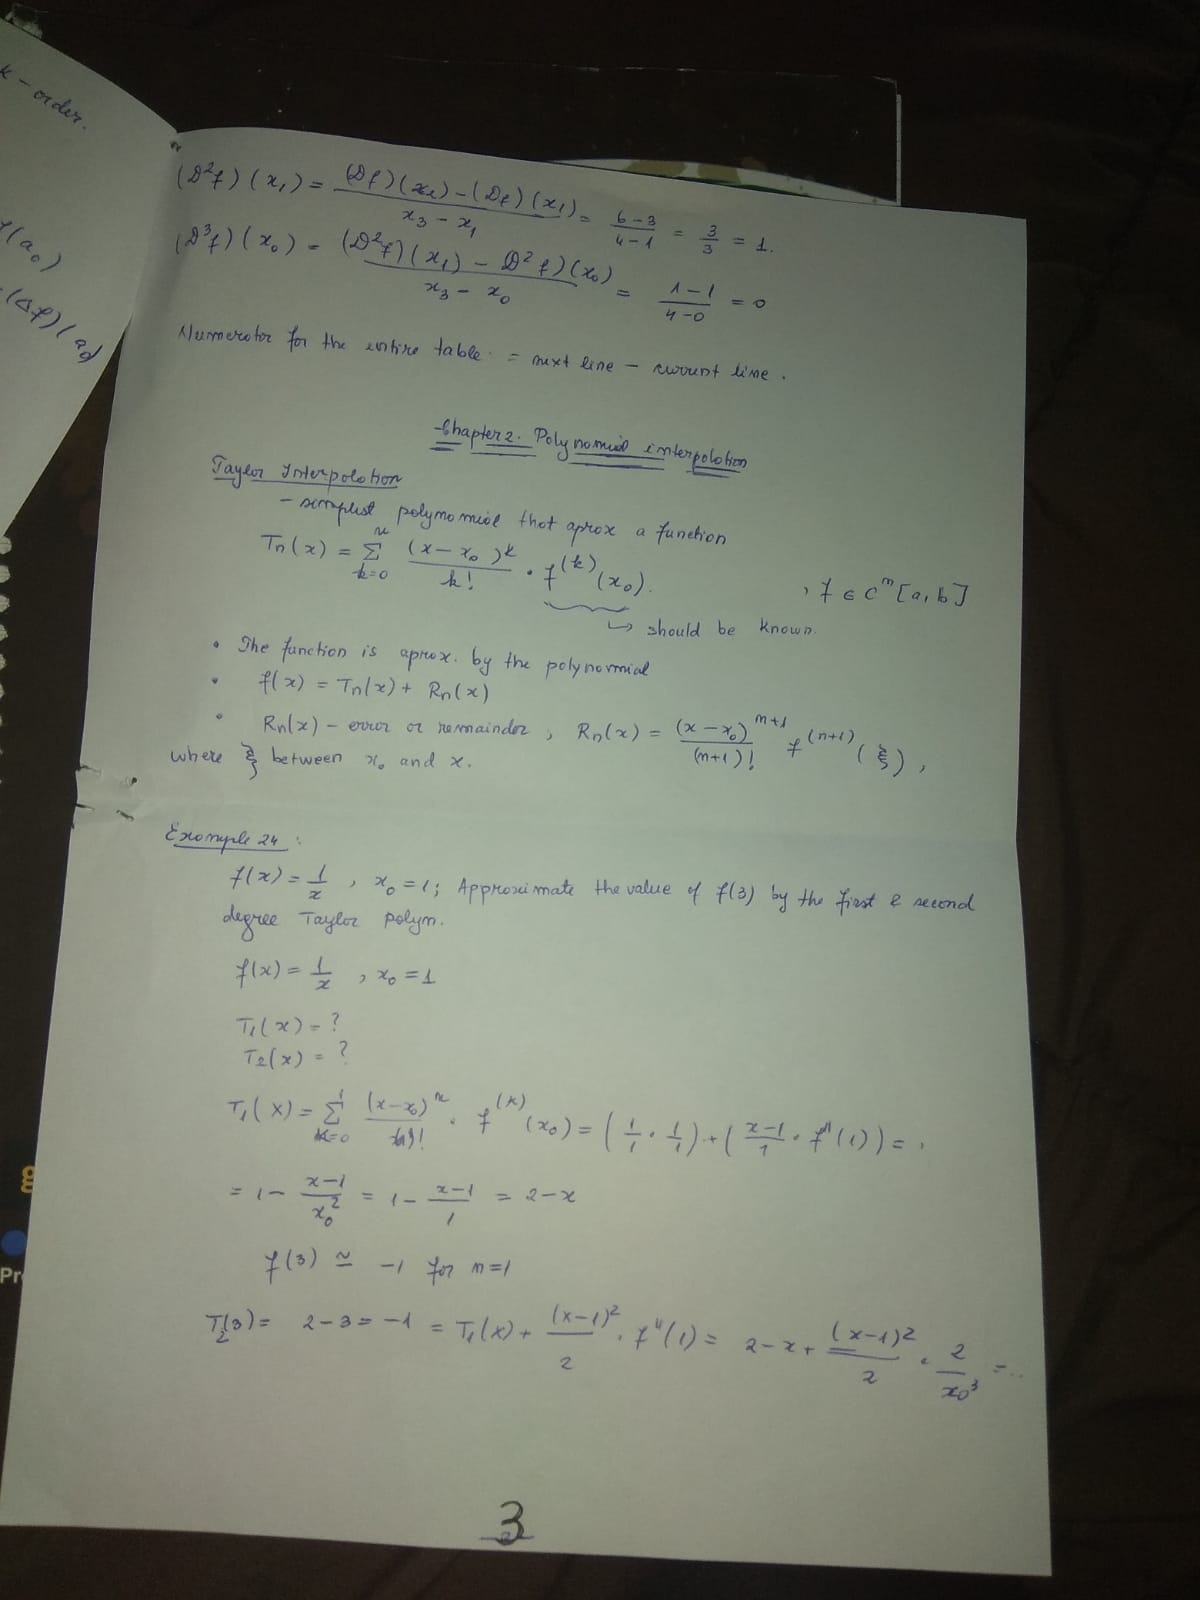 k - order.
(a₀)
(Δf)(a₀)
(D²f)(x₁) = (Df)(x₂) - (Df)(x₁) / x₃ - x₁ = 6-3 / 4-1 = 3/3 = 1.
(D³f)(x₀) = (D²f)(x₁) - D²f)(x₀) / x₃ - x₀ = 1-1 / 4-0 = 0
Numerator for the entire table = next line - current line.
Chapter 2. Polynomial interpolation
Taylor Interpolation
- simplest polynomial that aprox a function
Tn(x) = Σ k=0 n (x-x₀)^k / k! · f^(k)(x₀). , f ∈ C^n [a, b]
↳ should be known.
• The function is aprox. by the polynomial
• f(x) = Tn(x) + Rn(x)
• Rn(x) - error or remainder, Rn(x) = (x-x₀)^n+1 / (n+1)! f^(n+1)(ξ),
where ξ between x₀ and x.
Example 24:
f(x) = 1/x , x₀ = 1; Approximate the value of f(3) by the first & second
degree Taylor polyn.
f(x) = 1/x , x₀ = 1
T₁(x) = ?
T₂(x) = ?
T₁(x) = Σ k=0 1 (x-x₀)^k / k! · f^(k)(x₀) = (1/1 · 1/1) + (x-1/1 · f'(1)) =
= 1 - x-1 / x₀² = 1 - x-1 / 1 = 2-x
f(3) ≃ -1 for n=1
T₂(3) = 2-3 = -1 = T₁(x) + (x-1)² / 2 · f''(1) = 2-x+ (x-1)² / 2 · 2 / x₀³ = ..
3